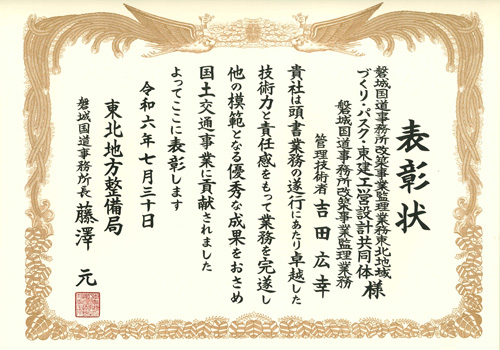 表彰状
磐城国道事務所改築事業監理業務東北地域
づくり・パスク・東建工営設計共同体 様
磐城国道事務所改築事業監理業務
管理技術者 吉田広幸
貴社は頭書業務の遂行にあたり卓越した
技術力と責任感をもって業務を完遂し
他の模範となる優秀な成果をおさめ
国土交通事業に貢献されました
よってここに表彰します
令和六年七月三十日
東北地方整備局
磐城国道事務所長 藤澤 元